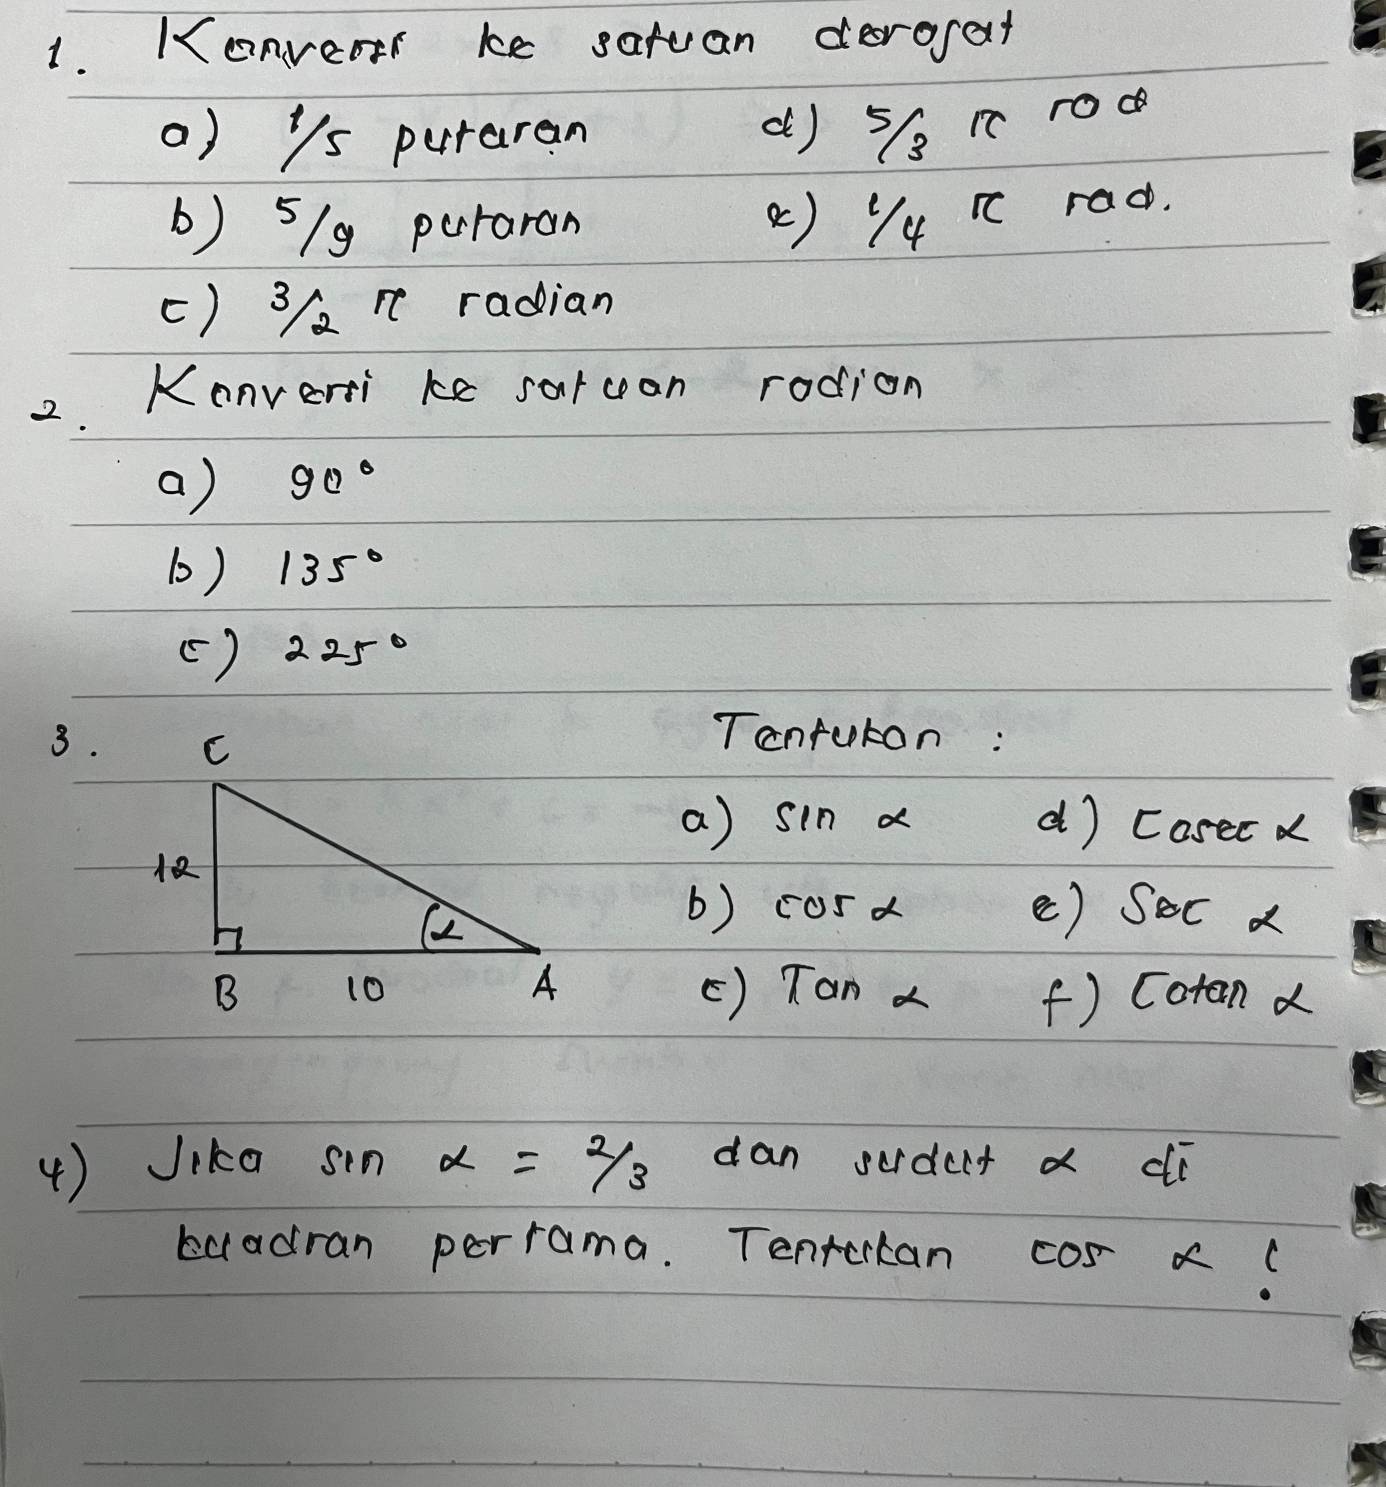 1. Konversi ke satuan derajat
a) 1/5 putaran d) 5/3 π rad
b) 5/9 putaran e) 1/4 π rad.
c) 3/2 π radian
2. Konversi ke satuan radian
a) 90°
b) 135°
c) 225°
3. C Tentukan :
12 a) sin α d) Cosec α
α b) cos α e) Sec α
B 10 A c) Tan α f) Cotan α
4) Jika sin α = 2/3 dan sudut α di
kuadran pertama. Tentukan cos α !